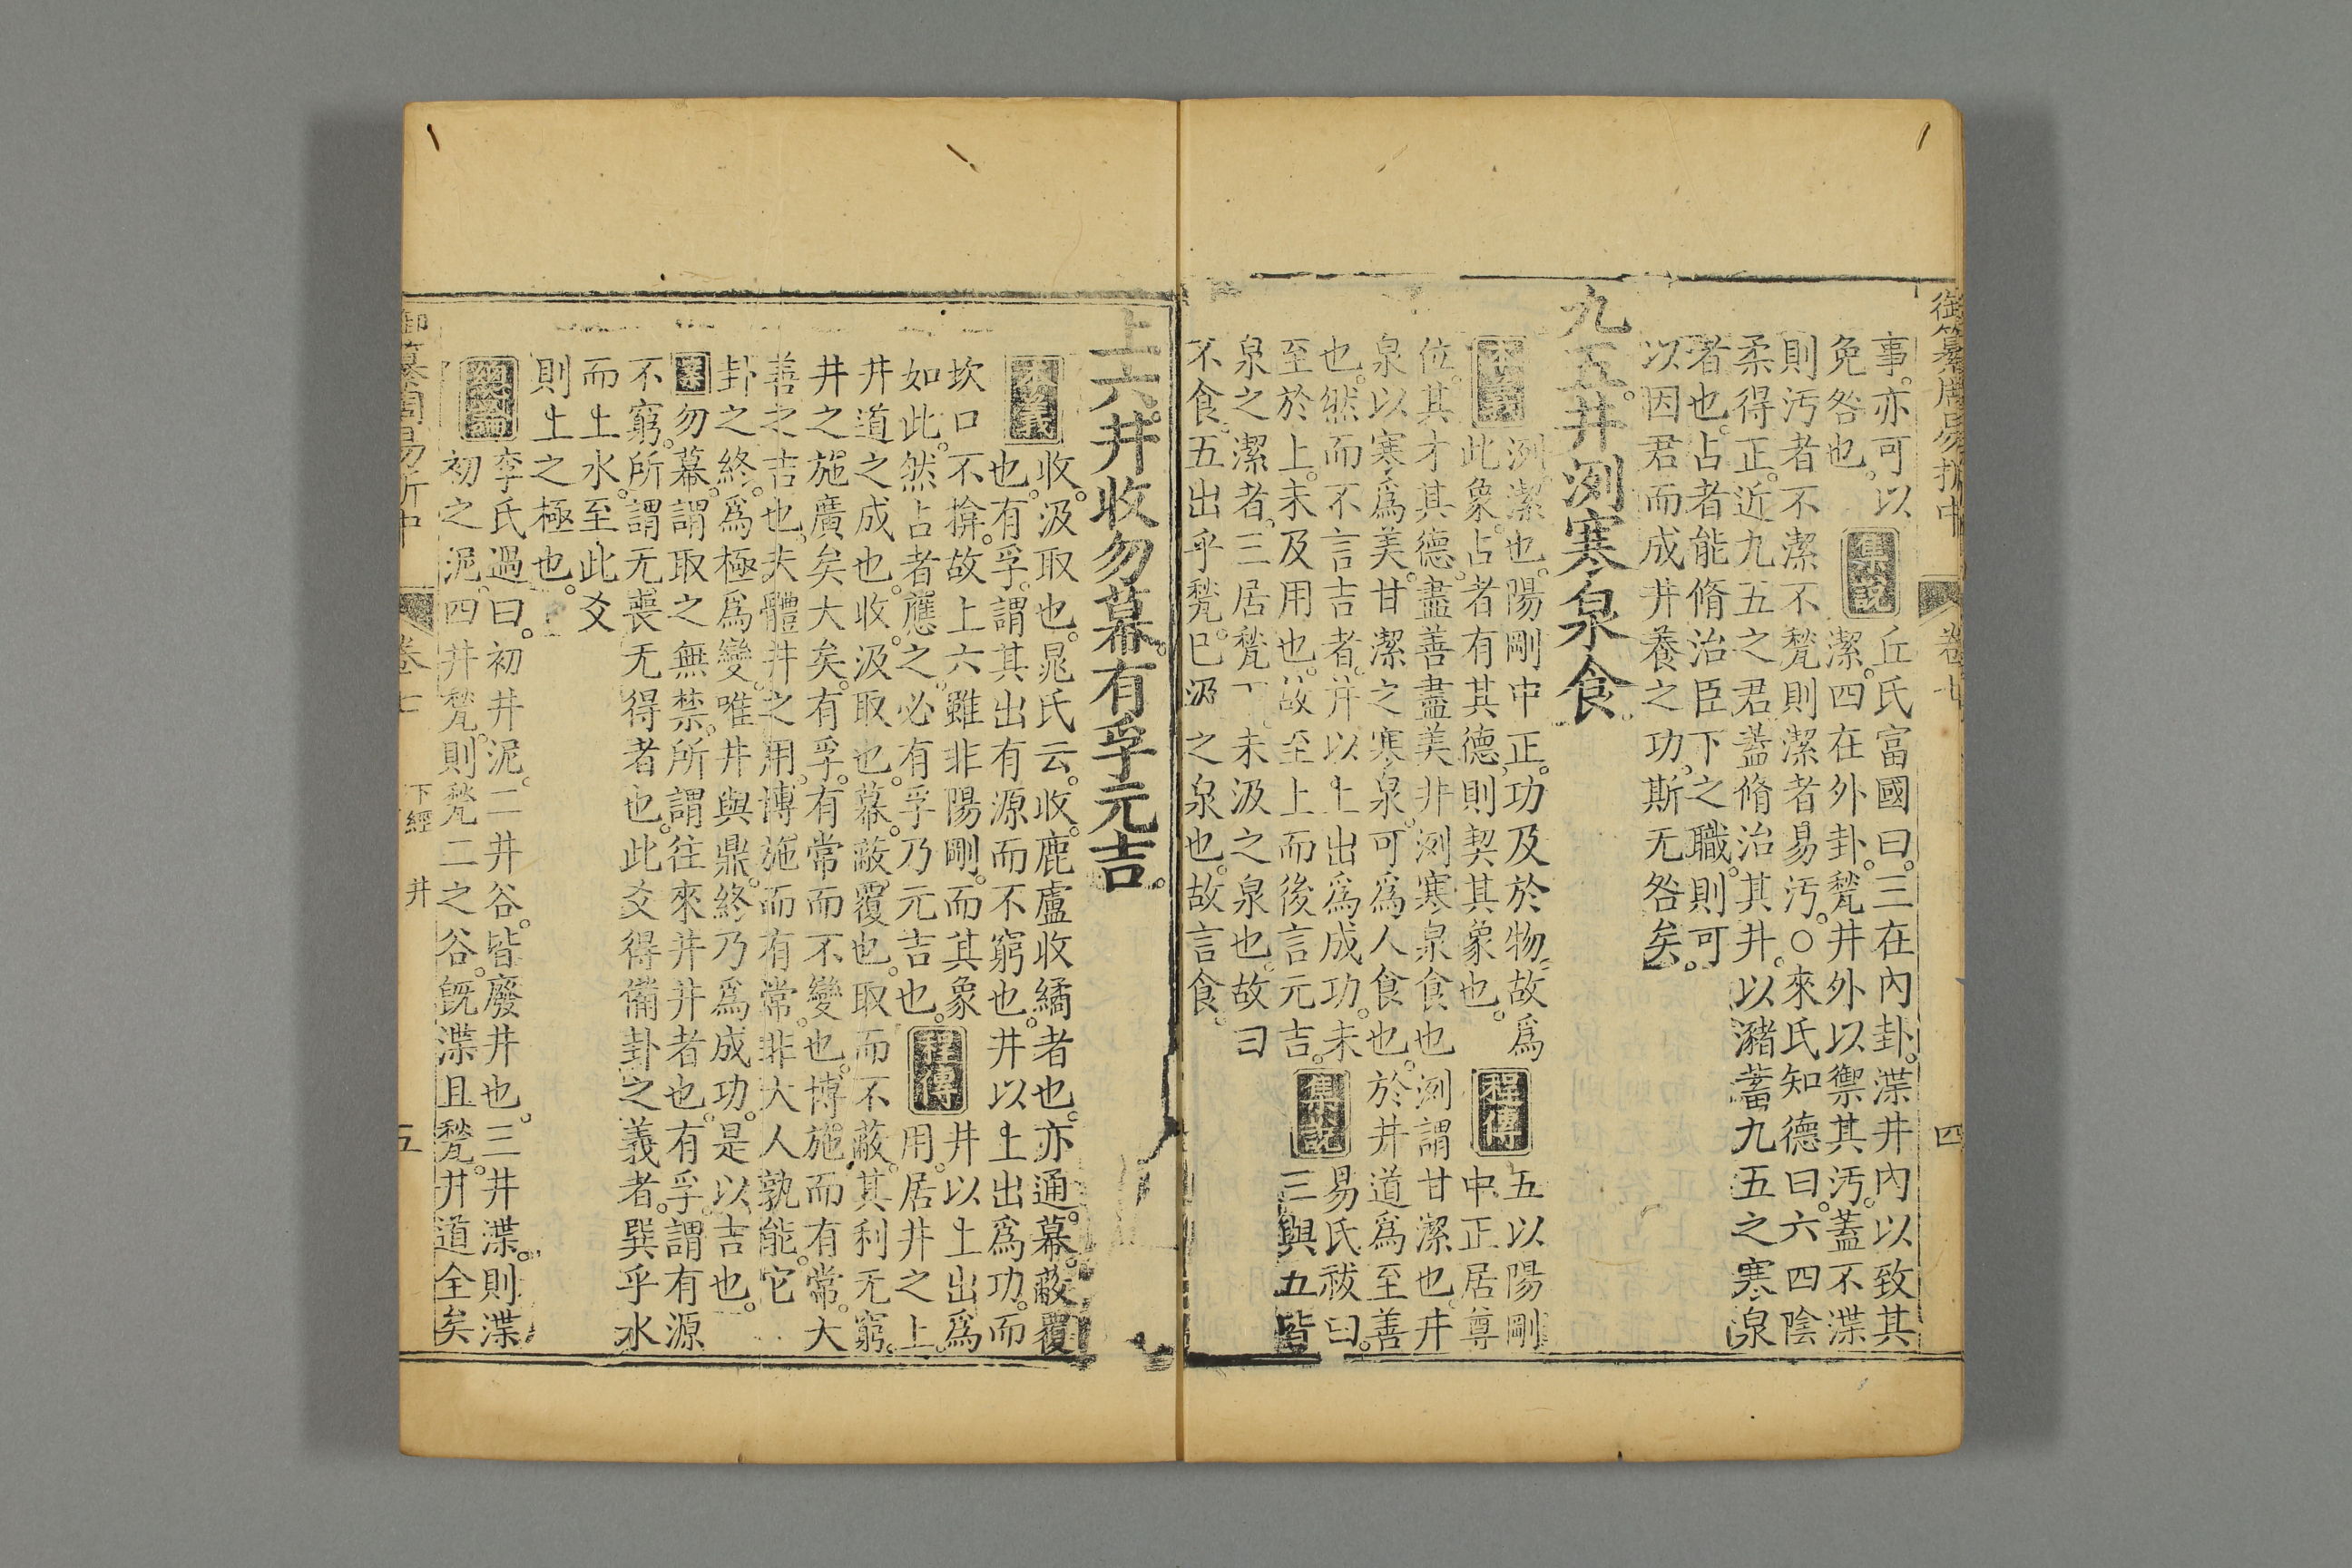 御纂周易折中 卷七 四
事亦可以 集說 丘氏富國曰三在內卦渫井內以致其
免咎也 潔四在外卦甃井外以禦其汚蓋不渫
則汚者不潔不甃則潔者易汚○來氏知德曰六四陰
柔得正近九五之君蓋脩治其井以瀦蓄九五之寒泉
者也占者能脩治臣下之職則可
以因君而成井養之功斯无咎矣
九五井洌寒泉食
本義 洌潔也陽剛中正功及於物故爲
此象占者有其德則契其象也 程傳 五以陽剛
中正居尊
位其才其德盡善盡美井洌寒泉食也洌謂甘潔也井
泉以寒爲美甘潔之寒泉可爲人食也於井道爲至善
也然而不言吉者井以上出爲成功未
至於上未及用也故至上而後言元吉 集說 易氏祓曰
三與五皆
泉之潔者三居甃下未汲之泉也故曰
不食五出乎甃已汲之泉也故言食
上六井收勿幕有孚元吉
本義 收汲取也晁氏云收鹿盧收繘者也亦通幕蔽覆
也有孚謂其出有源而不窮也井以上出爲功而
坎口不揜故上六雖非陽剛而其象
如此然占者應之必有孚乃元吉也 程傳 井以上出爲
用居井之上
井道之成也收汲取也幕蔽覆也取而不蔽其利无窮
井之施廣矣大矣有孚有常而不變也博施而有常大
善之吉也夫體井之用博施而有常非大人孰能它
卦之終爲極爲變唯井與鼎終乃爲成功是以吉也
案 勿幕謂取之無禁所謂往來井井者也有孚謂有源
不窮所謂无喪无得者也此爻得備卦之義者巽乎水
而上水至此爻
則上之極也
總論 李氏過曰初井泥二井谷皆廢井也三井渫則渫
初之泥四井甃則甃二之谷既渫且甃井道全矣
御纂周易折中 卷七 下經 井 五